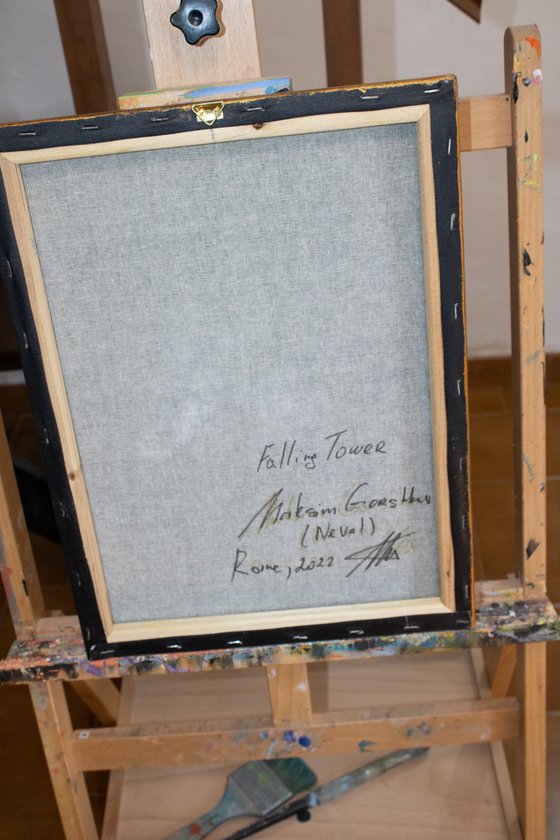 Falling Tower
Maksim Gorshkov
(Neval)
Rome, 2022